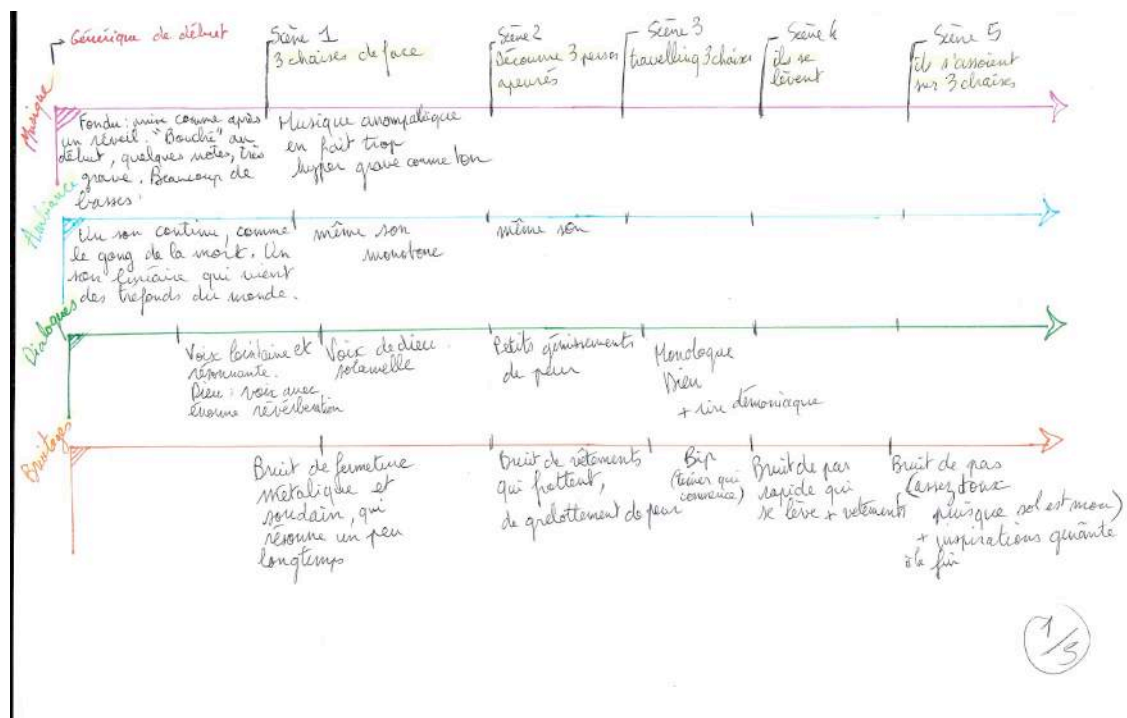 Générique de début
Scène 1
3 chaises de face
Scène 2
Découvre 3 perso
apeurés
Scène 3
travelling 3 chaises
Scène 4
ils se
lèvent
Scène 5
ils s'assoient
sur 3 chaises
Musique
Fondu : comme après
un réveil. "Bouché" au
début, quelques notes, très
grave. Beaucoup de
basses.
Musique
en fait trop
hyper grave comme ton
Ambiance
Un son continu, comme
le gong de la mort. Un
son linéaire qui vient
des trefonds du monde.
même son
monotone
même son
Dialogues
Voix lointaine et
résonnante.
Dieu : voix avec
énorme réverbération
Voix de dieu
solannelle
Petits gémissements
de peur
Monologue
Dieu
+ rire démoniaque
Bruitages
Bruit de fermeture
métalique et
soudain, qui
résonne un peu
longtemps
Bruit de vêtements
qui frottent,
de grelottement de peur
Bip
(timer qui
commence)
Bruit de pas
rapide qui
se lève + vetements
Bruit de pas
(assez doux
puisque sol est mou)
+ inspirations gênante
à la fin
1/5